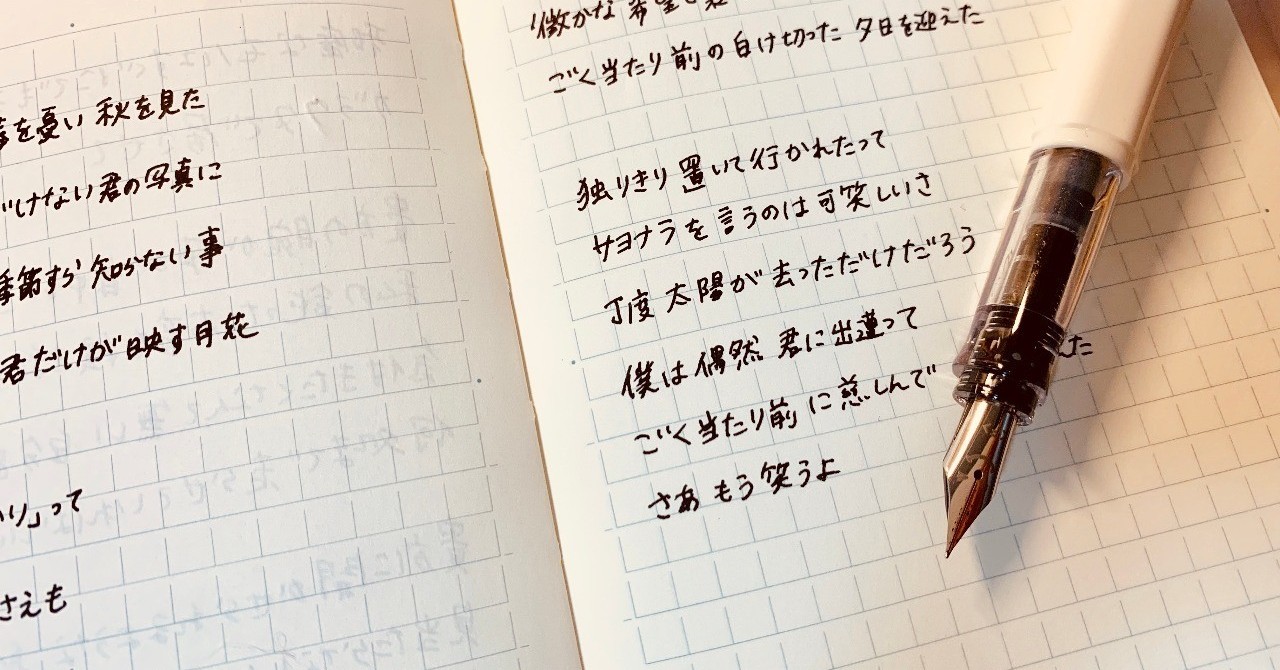 を憂い 秋を見た
けない君の写真に
季節すら 知らない事
君だけが映す月花
り」って
さえも
微かな 希望
ごく当たり前の白け切った 夕日を迎えた
独りきり 置いて行かれたって
サヨナラを言うのは可笑しいさ
丁度 太陽が去っただけだろう
僕は偶然 君に出逢って
ごく当たり前に慈しんで
た
さあ もう笑うよ